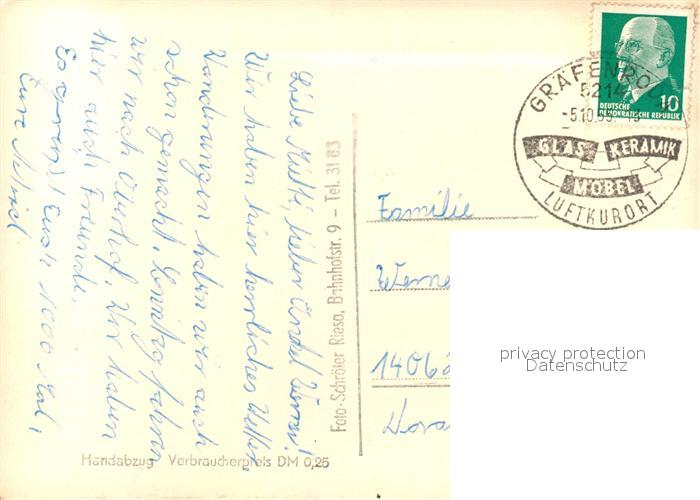 Liebe Mutti, lieber Onkel Werner!
Wir haben hier herrliches Wetter.
Wanderungen haben wir auch
schon gemacht. Sonntag fahren
wir nach Oberhof. Wir haben
hier auch Freunde.
Es grüsst Euch 1000 Mal,
Eure
Foto-Schröter Riesa, Bahnhofstr. 9 - Tel. 31 83
Handabzug Verbraucherpreis DM 0,25
GRÄFENRODA
5214
-5.10.
GLAS KERAMIK
MÖBEL
LUFTKURORT
10
DEUTSCHE
DEMOKRATISCHE REPUBLIK
Familie
Werne
1406
privacy protection
Datenschutz